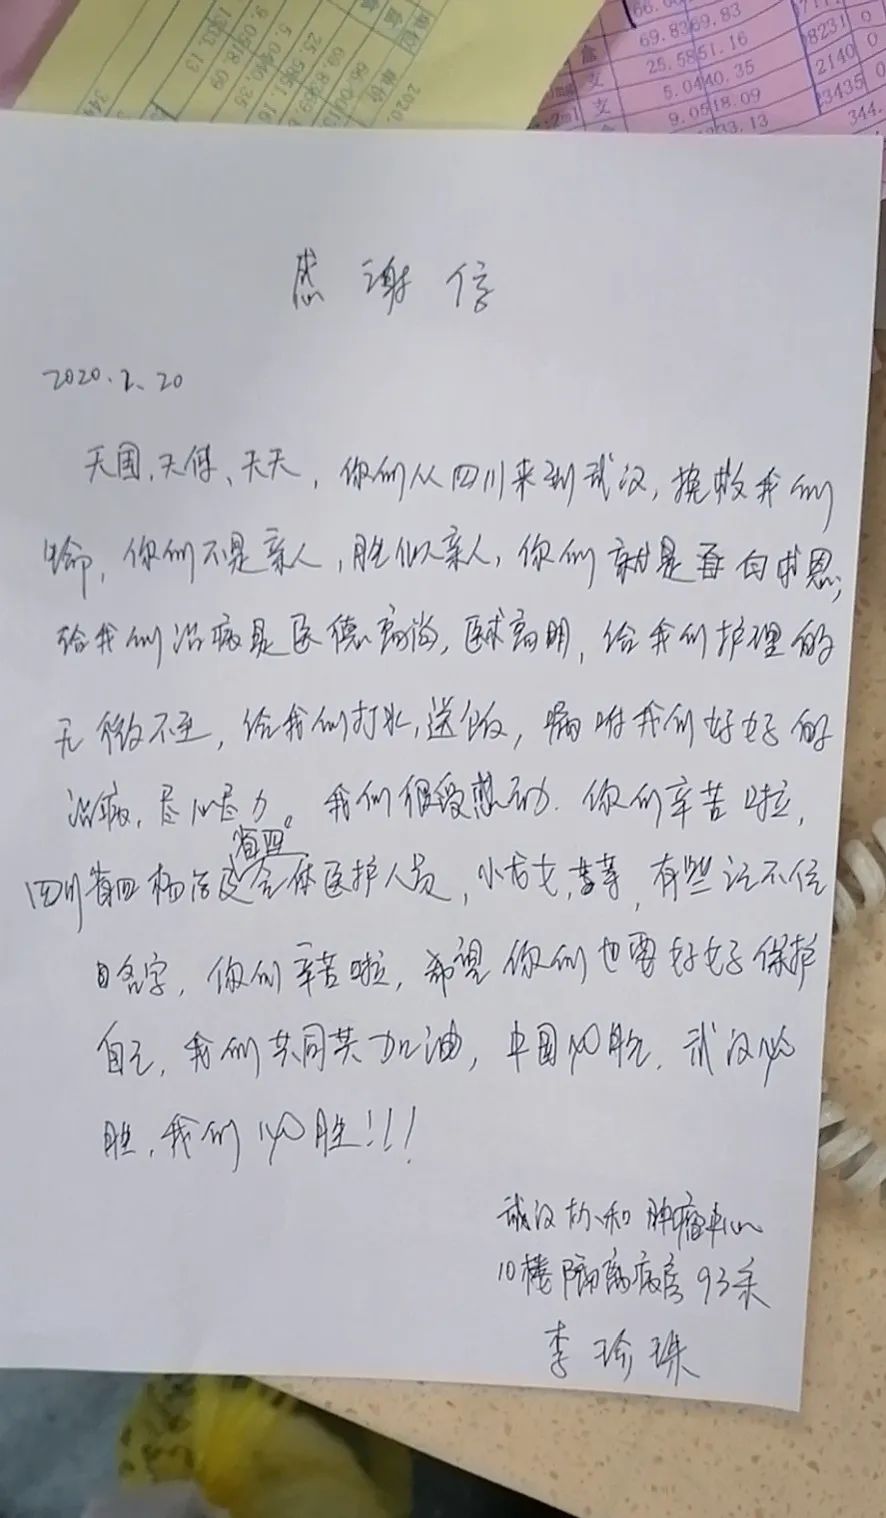 66.00
盒 69.83 69.83
支 25.58 51.16
支 5.04 40.35
:2ml 9.05 18.09
33.13
8231 0
2140 0
23435 0
344.
感谢信
2020.2.20
天国、天使、天天，你们从四川来到武汉，挽救我们
生命，你们不是亲人，胜似亲人，你们就是 白求恩，
给我们治病是医德高尚，医术高明，给我们护理的
无微不至，给我们打水，送饭，嘱咐我们好好的
治病，尽心尽力。我们很受感动．你们辛苦啦，
省四
四川省四杨 及全体医护人员，小 女，等等，有些记不住
名字，你们辛苦啦，希望你们也要好好保护
自己，我们共同共加油，中国必胜．武汉必
胜．我们必胜!!!
武汉协和肿瘤中心
10楼隔离病房 93床
李珍珠